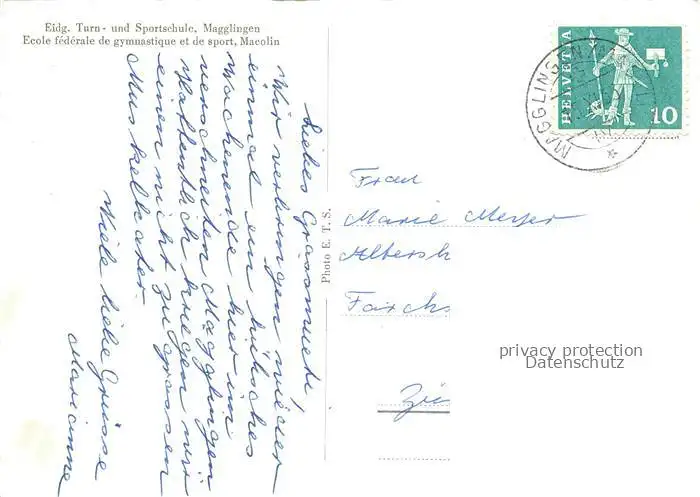 Eidg. Turn- und Sportschule, Magglingen
Ecole fédérale de gymnastique et de sport, Macolin
Liebes Grossmueti,
Wir verbringen wieder
einmal ein hübsches
Wochenende hier im
verschneiten Magglingen
Hoffentlich kriegen wir
einen nicht zu grossen
Muskelkater.
Viele liebe Grüsse
Marianne
Photo E. T. S.
HELVETIA
10
MAGGLINGEN
Frau
Marie Meyer
Albersh
Zü
privacy protection
Datenschutz